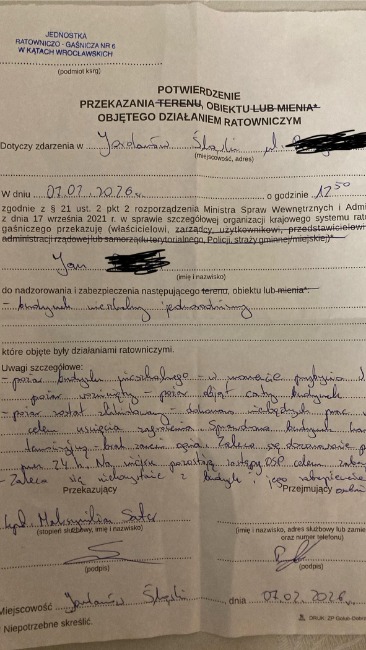 JEDNOSTKA
RATOWNICZO - GAŚNICZA NR 6
W KĄTACH WROCŁAWSKICH
(podmiot ksrg)
POTWIERDZENIE
PRZEKAZANIA TERENU, OBIEKTU LUB MIENIA*
OBJĘTEGO DZIAŁANIEM RATOWNICZYM
Dotyczy zdarzenia w Jordanów Śląski pl.
(miejscowość, adres)
W dniu 07.02.2026r. o godzinie 12 50
zgodnie z § 21 ust. 2 pkt 2 rozporządzenia Ministra Spraw Wewnętrznych i Admi
z dnia 17 września 2021 r. w sprawie szczegółowej organizacji krajowego systemu rato
gaśniczego przekazuję (właścicielowi, zarządcy, użytkownikowi, przedstawicielowi
administracji rządowej lub samorządu terytorialnego, Policji, straży gminnej/miejskiej)*
Jan
(imię i nazwisko)
do nadzorowania i zabezpieczenia następującego terenu, obiektu lub mienia*:
- budynek mieszkalny jednorodzinny
które objęte były działaniami ratowniczymi.
Uwagi szczegółowe:
- pożar budynku mieszkalnego - w momencie przybycia
pożar - pożar objął cały budynek
- pożar został zlokalizowany - dokonano niezbędnych prac
celem usunięcia zagrożenia. Sprawdzono budynek
brak zarzewi ognia. Zaleca się dozorowanie
przez 24 h. Na miejscu pozostają zastępy OSP celem
- Zaleca się z budynku jego zabezpieczenie
Przekazujący Przejmujący
(stopień służbowy, imię i nazwisko) (imię i nazwisko, adres służbowy lub zamie
oraz numer telefonu)
(podpis) (podpis)
Miejscowość Jordanów Śląski, dnia 07.02.2026r.
* Niepotrzebne skreślić. DRUK: ZP Golub-Dobrz